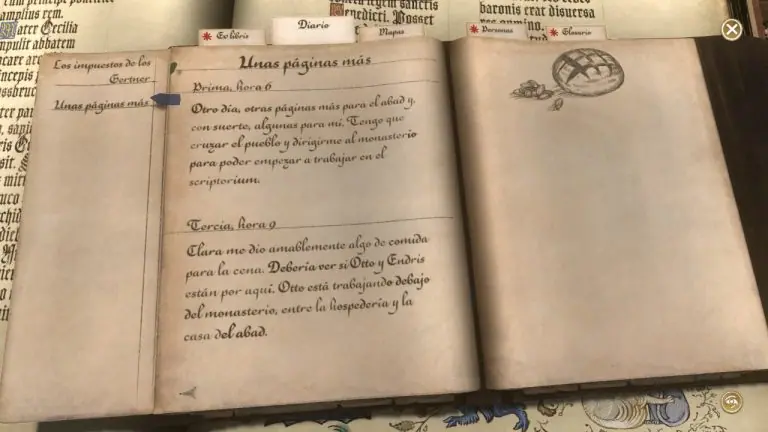 baronis erat diuersa
Benedicti. Posset
ater Cecilia
mpulit abbatem
Ex libris
Diario
Mapas
Personas
Glosario
Los impuestos de los
Gertner
Unas páginas más
Unas páginas más
Prima, hora 6
Otro día, otras páginas más para el abad y,
con suerte, algunas para mí. Tengo que
cruzar el pueblo y dirigirme al monasterio
para poder empezar a trabajar en el
scriptorium.
Tercia, hora 9
Clara me dio amablemente algo de comida
para la cena. Debería ver si Otto y Endris
están por aquí. Otto está trabajando debajo
del monasterio, entre la hospedería y la
casa del abad.